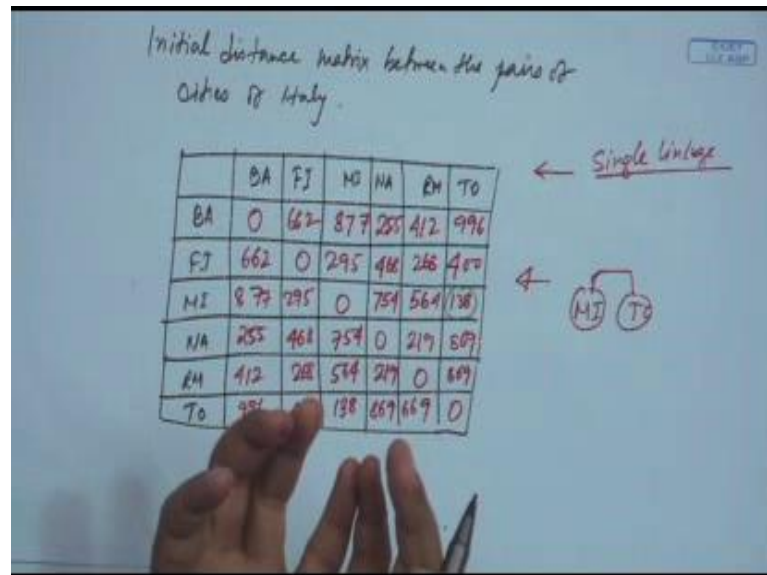 Initial distance matrix between the pairs of
Cities of Italy.
← Single linkage
BA FI MI NA RM TO
BA 0 662 877 255 412 996
FI 662 0 295 468 268 400
MI 877 295 0 754 564 138
NA 255 468 754 0 219 869
RM 412 268 564 219 0 669
TO 138 869 669 0
← MI TO